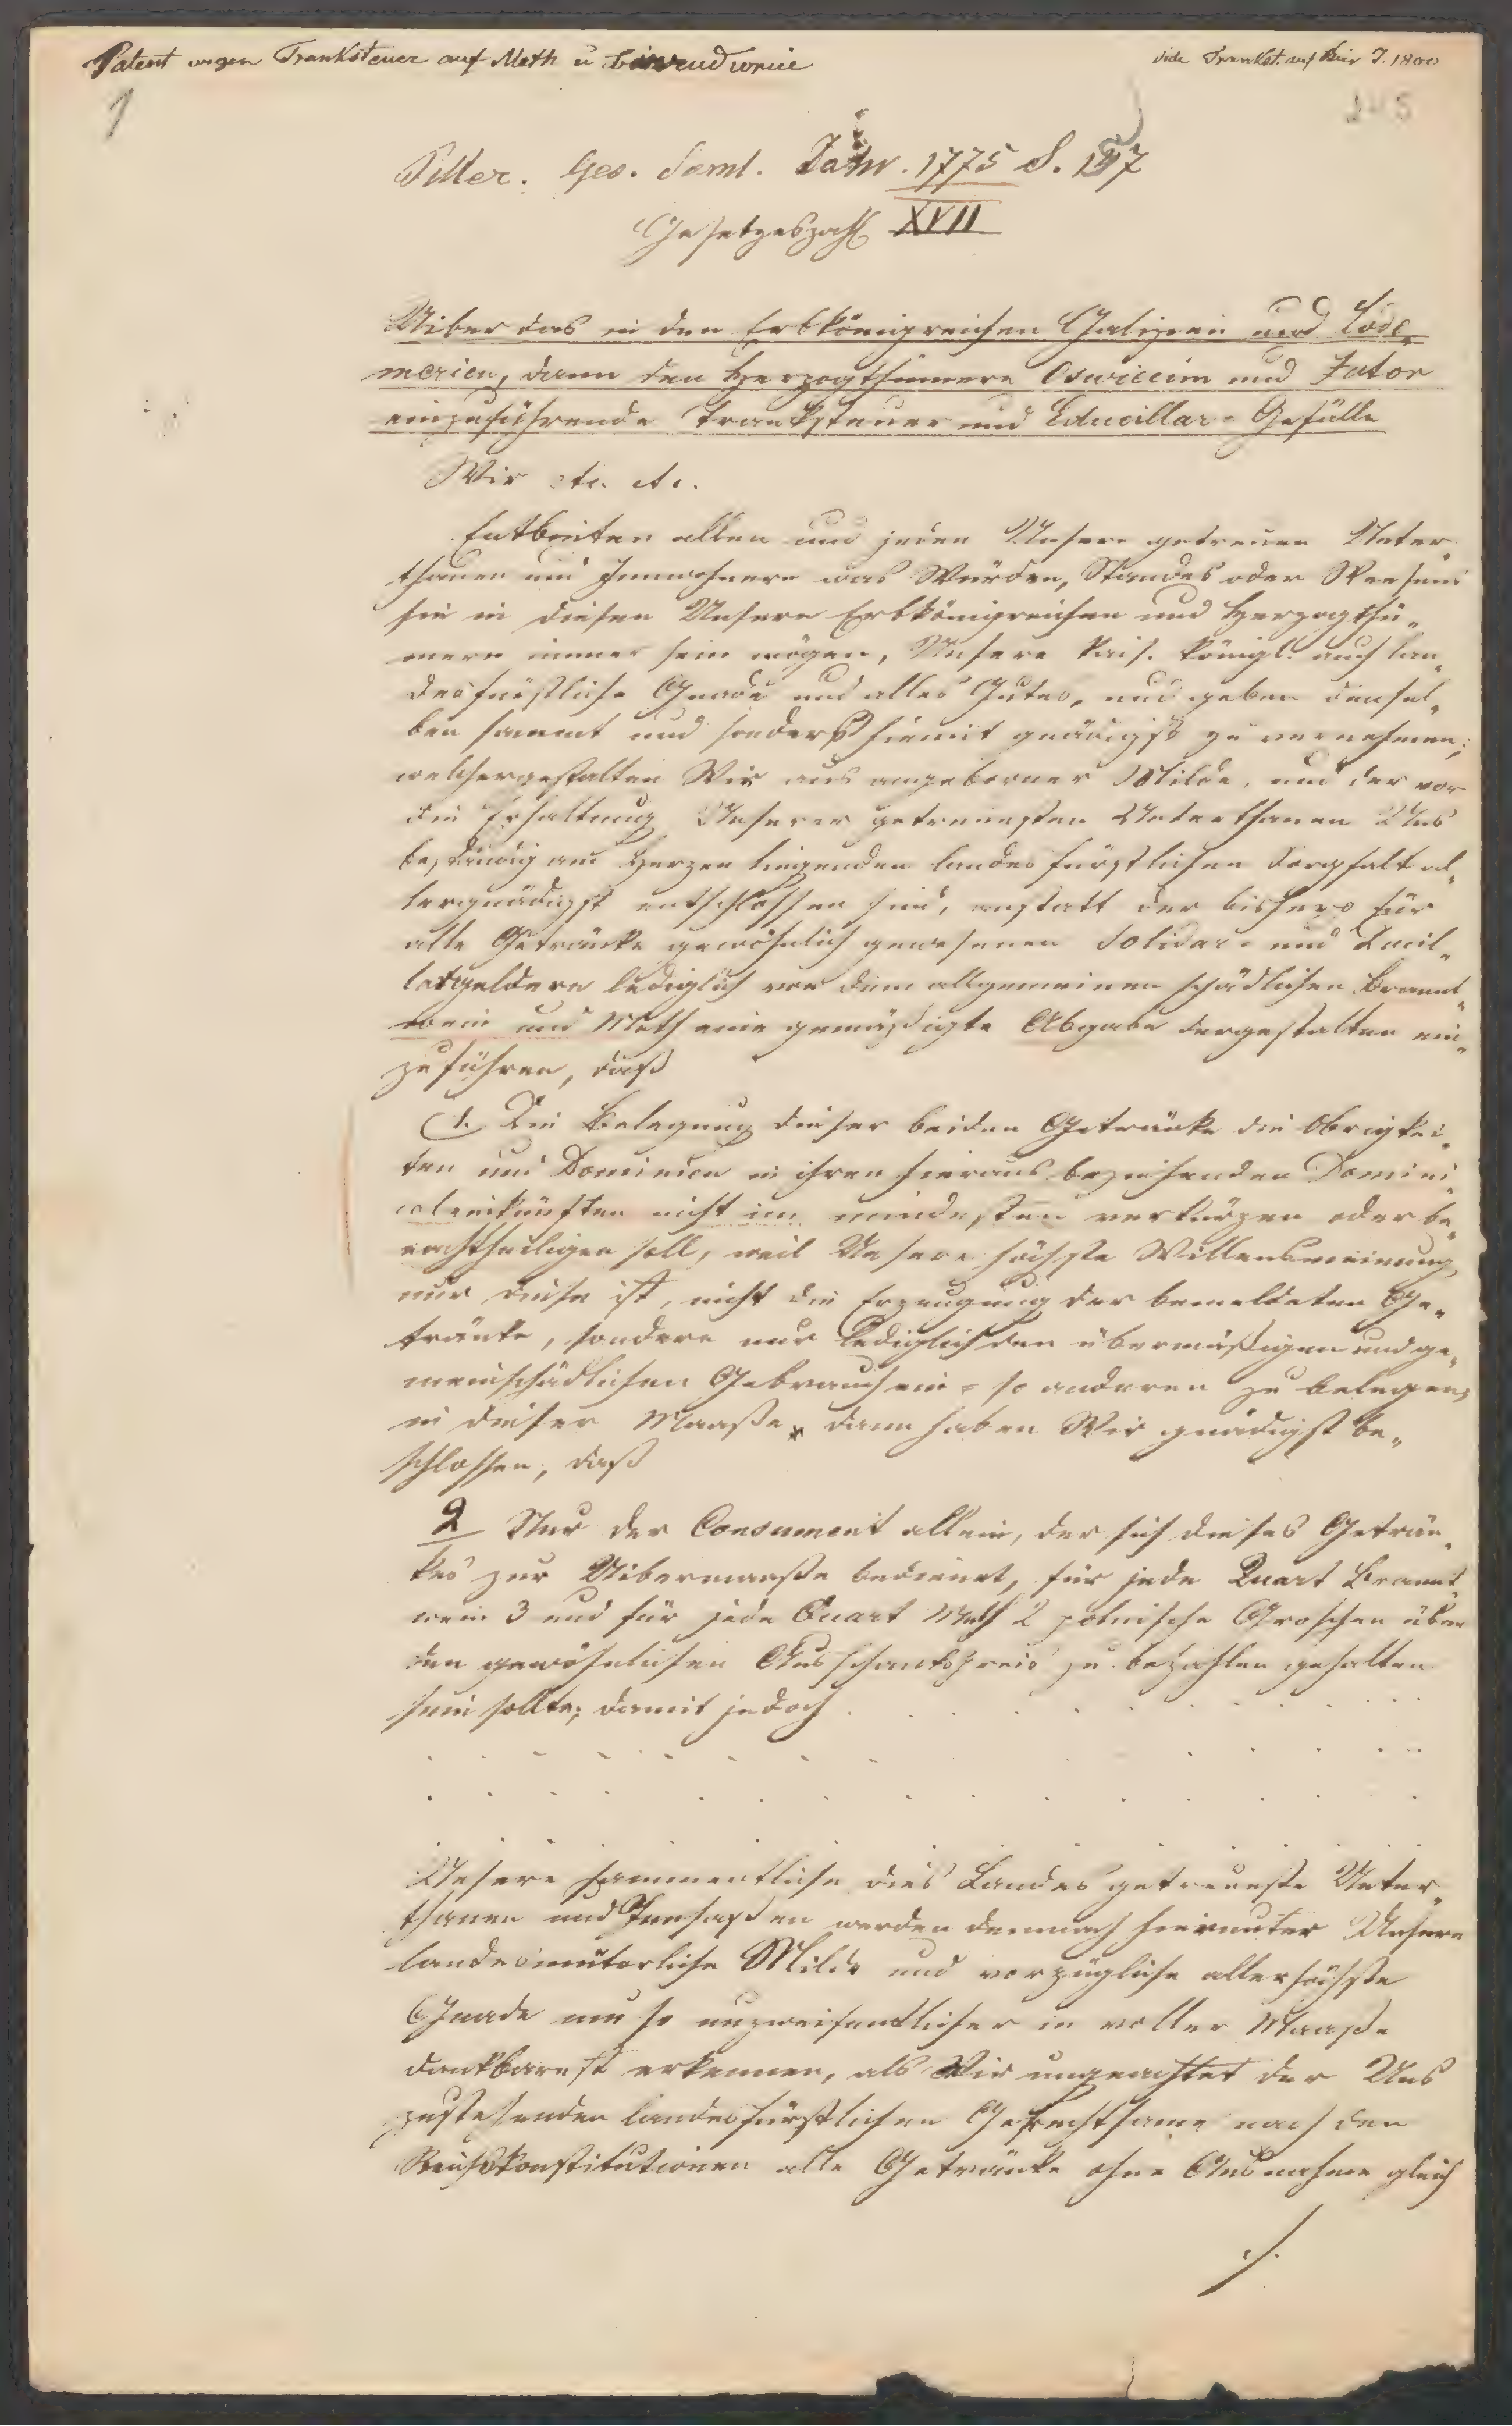 Patent wegen Tranksteuer auf Meth u Brandwein
vide Trankst. auf Bier J. 1800
1
245
Piller. Ges. Saml. Jahr. 1775 S. 137
Gesetzeszahl XVII
Uiber das in den Erbkönigreichen Galizien und Lodo„
merien, dann den Herzogthümern Oswiecim und Zator
einzuführende Tranksteuer und Educillar-Gefälle
Wir etc. etc.
Entbieten allen und jeden Unsern getreuen Unter„
thanen und Innwohnern was Würden, Standes oder Weesens
sie in diesen Unsern Erbkönigreichen und Herzogthü„
mern immer sein mögen, Unsere kais. königl. auch lan„
desfürstliche Gnade und alles Gutes, und geben densel„
ben sammt und sonders hiemit gnädigst zu vernehmen;
welchergestalten Wir aus angeborner Milde, und der vor
die Erhaltung Unserer getreuesten Unterthanen Uns
beständig am Herzen liegenden landesfürstlichen Sorgfalt al„
lergnädigst entschlossen sind, anstatt der bishero für
alle Getränke gewöhnlich gewesenen Solidar- und Ducil„
largeldern lediglich von dem allgemeinen schädlichen Brannt„
wein und Meth eine gemäßigte Abgabe dergestalten ein„
zuführen, daß
1. Die Belegung dieser beiden Getränke die Obrigkei„
ten und Dominien in ihren hieraus beziehenden Domini„
caleinkünften nicht im mindesten verkürzen oder be„
nachtheiligen soll, weil Unsere höchste Willensmeinung
nur diese ist, nicht die Erzeugung der bemeldeten Ge„
tränke, sondern nur lediglich den übermäßigen und ge„
meinschädlichen Gebrauch ein- so anderen zu belegen;
in dieser Maaße, dann haben Wir gnädigst be„
schlossen, daß
2 Nur der Consument allein, der sich dieses Geträn„
kes zur Uibermaaße bedienet, für jede Quart Brannt„
wein 3 und für jede Quart Meth 2 polnische Groschen über
den gewöhnlichen Ausschankspreis zu bezahlen gehalten
sein sollte; damit jedoch . . . . . . . . .
. . . . . . . . . . . .
. . . . . . . . . . . .
Unsere sammentliche dies Landes getreueste Unter„
thanen und Innsaßen werden demnach hierunter Unsere
landesmüterliche Milde und vorzügliche allerhöchste
Gnade um so unzweifentlicher in voller Maaße
dankbarest erkennen, als Wir ungeachtet der Uns
zustehenden landesfürstlichen Gerechtsame nach den
Reichskonstitutionen alle Getränke ohne Ausnahme gleich
./.